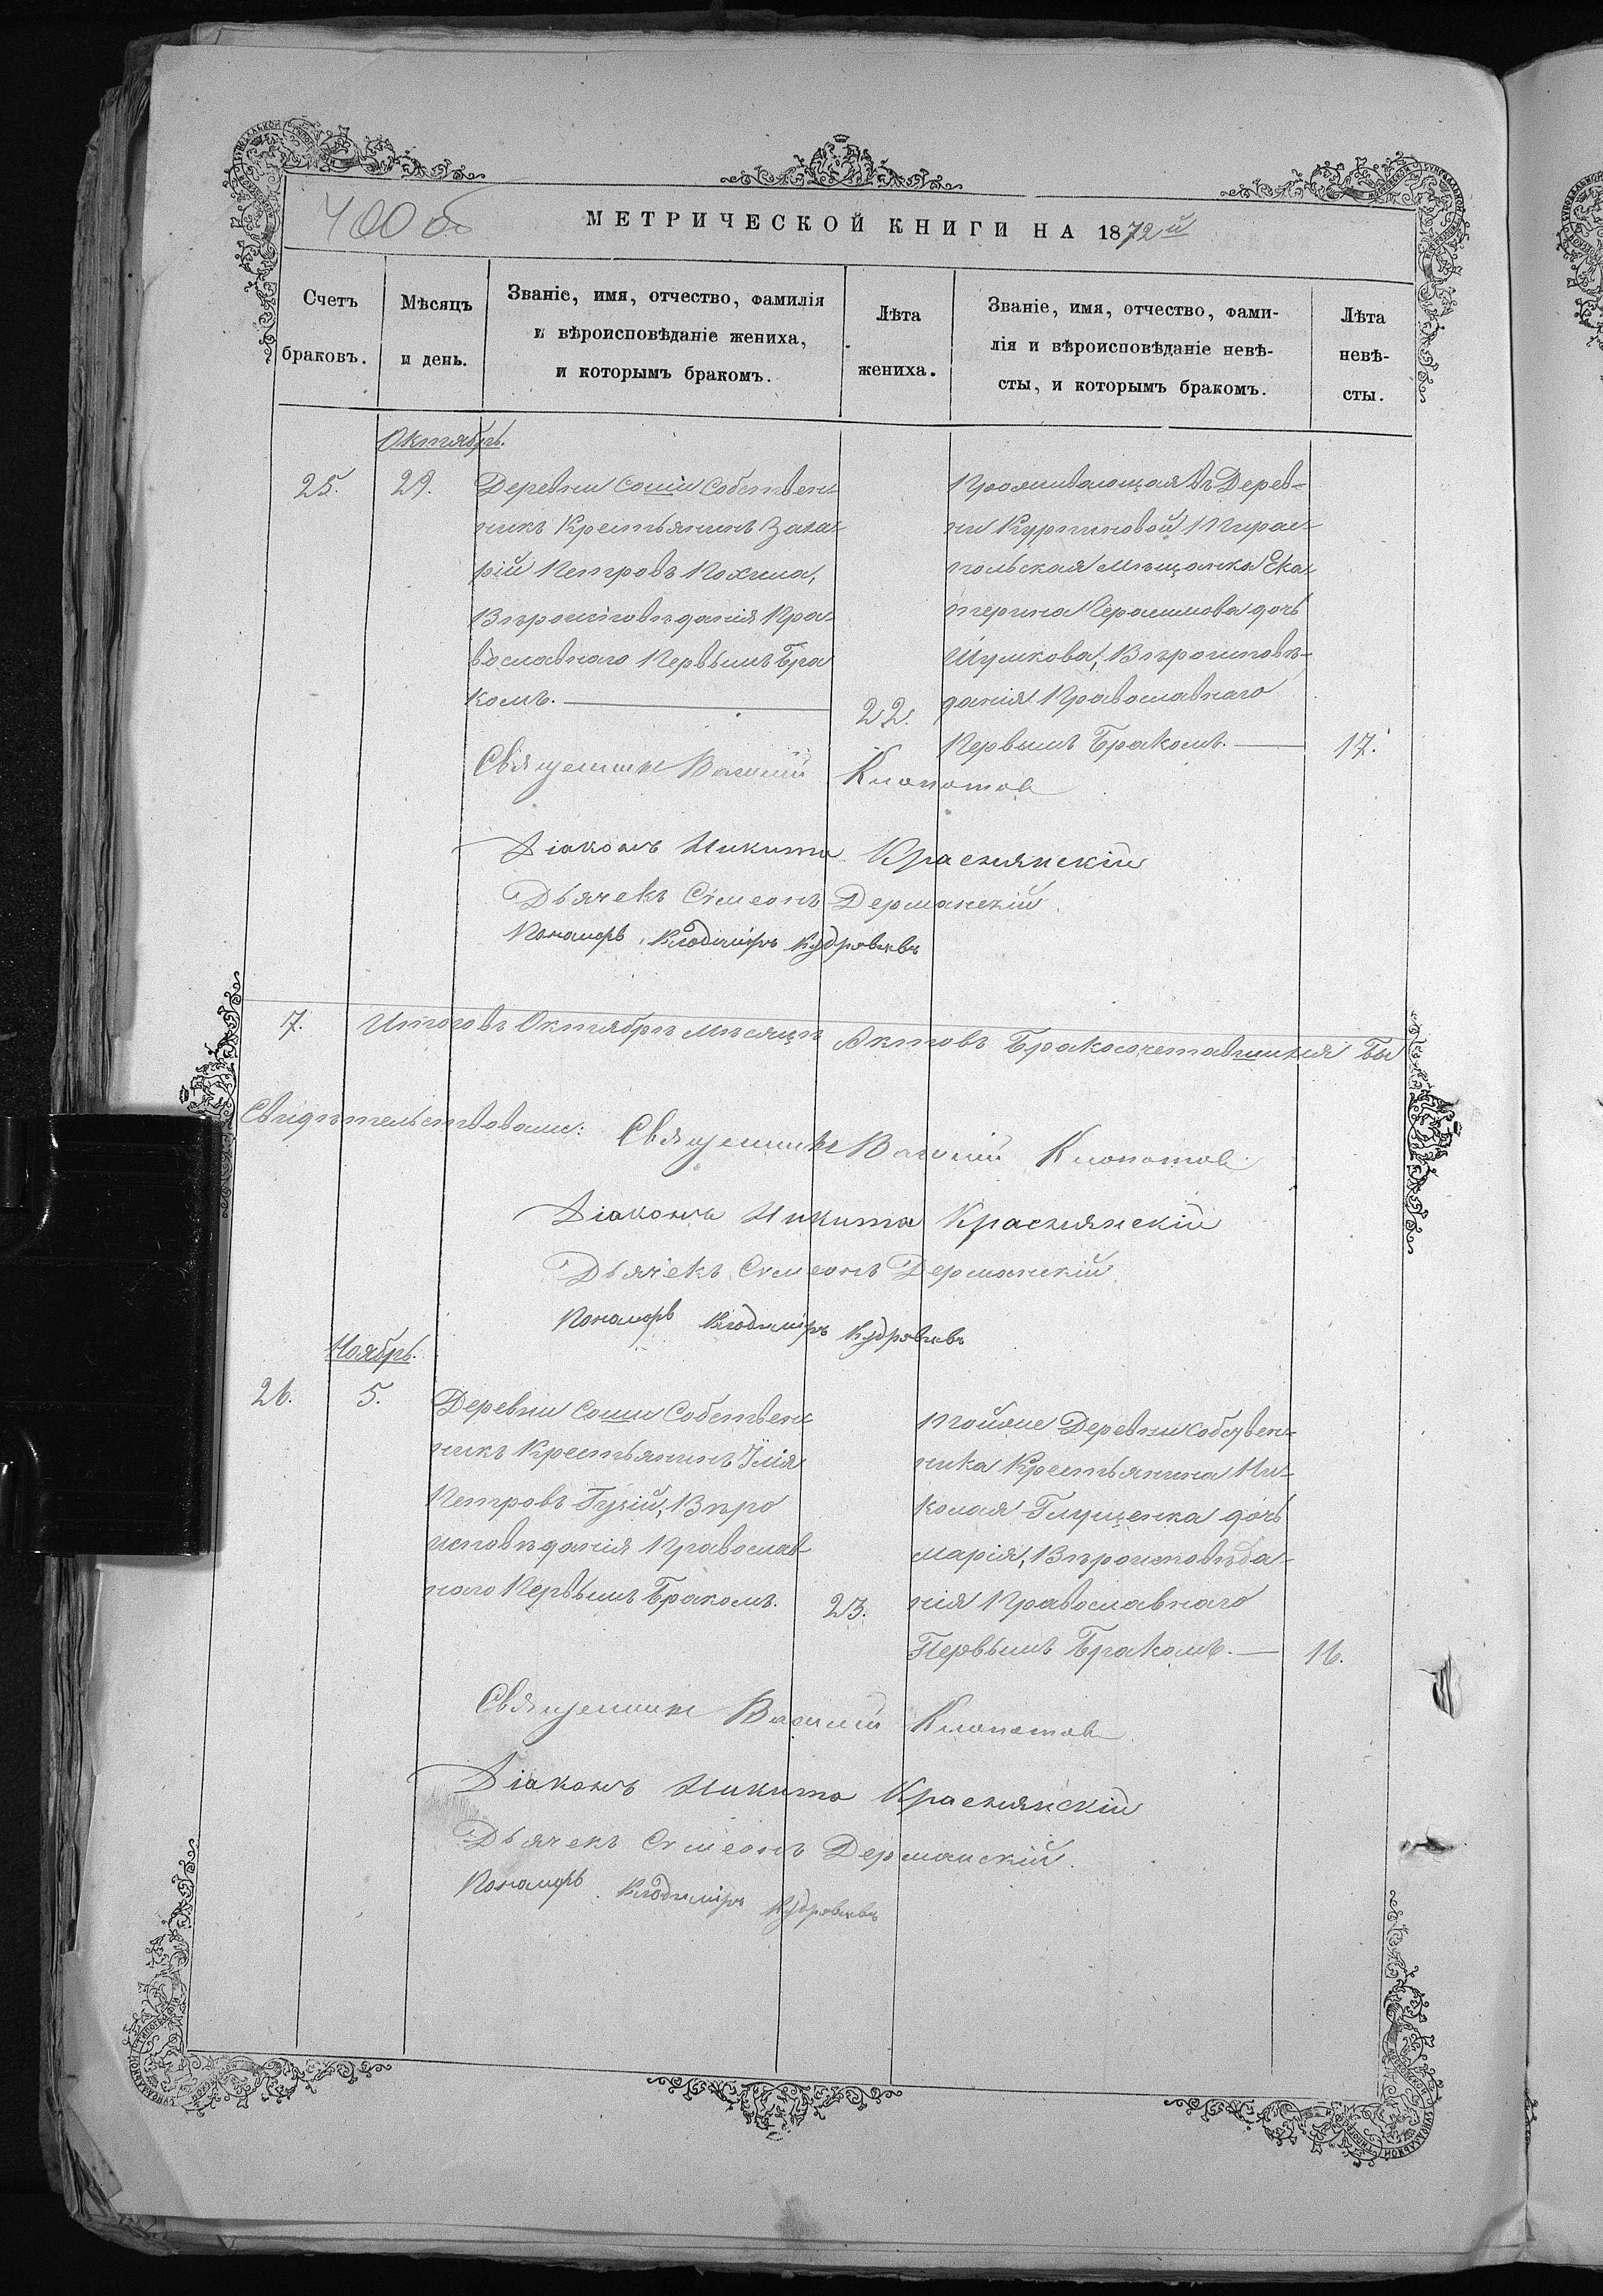 400 об
МЕТРИЧЕСКОЙ КНИГИ НА 1872й
Счетъ
браковъ.
Мѣсяцъ
и день.
Званіе, имя, отчество, фамилія
и вѣроисповѣданіе жениха,
и которымъ бракомъ.
Лѣта
жениха.
Званіе, имя, отчество, фами-
лія и вѣроисповѣданіе невѣ-
сты, и которымъ бракомъ.
Лѣта
невѣ-
сты.
Октябрь.
25.
29.
Деревни Сошіи Собственн-
никъ Крестьянинъ Заха-
рій Петровъ Похила,
Вѣроисповѣданія Пра-
вославнаго Первымъ Бра
комъ.
22.
Проживающая въ Дерев-
ни Курпиновой Тирас-
польская мѣщанка Ека-
терина Герасимова дочь
Шумкова, Вѣроисповѣ-
данія Православнаго
Первымъ Бракомъ.
17.
Священникъ Василій Клопотов
Діаконъ Никита Краснянскій
Дьячекъ Симеонъ Дерманскій.
Пономарь Владиміръ
7. Итого въ Октябрѣ мѣсяцѣ Актовъ Бракосочетавшихся Бы
Свидѣтельствовали: Священникъ Василій Клопотов
Діаконъ Никита Краснянскій
Дьячекъ Симеонъ Дерманскій
Пономарь Владиміръ
Ноябрь.
26.
5.
Деревни Сошіи Собственн
никъ Крестьянинъ Илія
Петровъ Гуцій, Вѣро
исповѣданія Православ-
наго Первымъ Бракомъ.
23.
Тойже Деревни собствен-
ника Крестьянина Ни-
колая Глущенка дочь
Марія, Вѣроисповѣда-
нія Православнаго
Первымъ Бракомъ.
16.
Священникъ Василій Клопотов
Діаконъ Никита Краснянскій
Дьячекъ Симеонъ Дерманскій.
Пономарь Владиміръ